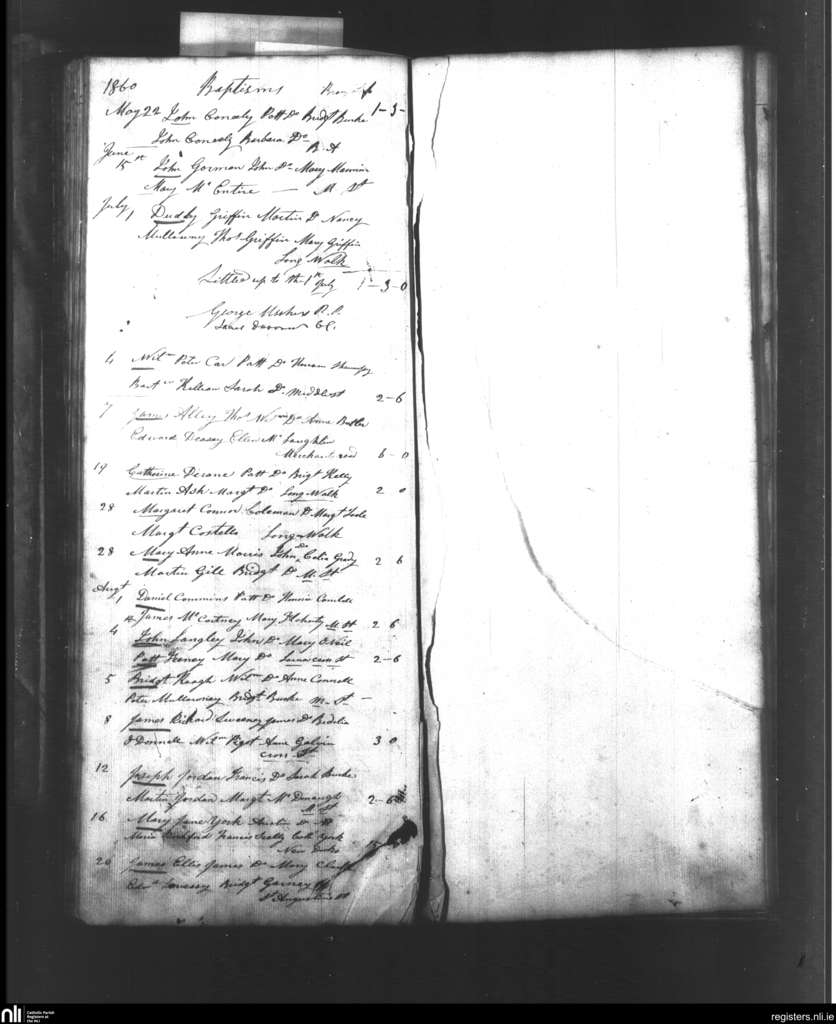 1860 Baptisms
May 22 John Conealy Patt Do Bridgt Burke 1-3-
John Conealy Barbara Do
B. St
June
15 John Gorman John Do Mary Mannin
Mary McEntire — M St
July 1 Dudly Griffin Martin Do Nancy
Mullowny Thos Griffin Mary Griffin
Long Walk
Settled up to the 1st July 1-3-0
George Usher P.P.
James C.C.
4 Willm Peter Car Patt Do
Killean Sarah Do Middle st 2-6
7 James Alley Thos Do Anne Butler
Edward Deasey Ellen McLaughlin
Merchant road 6-0
19 Catherine Dirane Patt Do Brigt Kelly
Martin Ash Margt Do Long Walk 2 0
28 Margaret Connor Coleman Do Margt
Margt Costello Long Walk
28 Mary Anne Morris John Do Celia Grady 2 6
Martin Gill Bridgt Do M. St
Augt
1 Daniel Commins Patt Do
James McCartney Mary Flaherty M St 2 6
4 John Langley John Do Mary O Neil
Patt Feeney Mary Do st 2-6
5 Bridgt Keogh Willm Do Anne Connell
Peter Mullowney Bridgt Burke M. St —
8 James Richard Sweeney James Do Bedelia
O Donnell Willm Pigot Anne Galvin 3 0
Cross St
12 Joseph Jordan Francis Do Sarah Burke
Martin Jordan Margt McDonagh 2-6
M St
16 Mary Jane York Austin Do
Maria Francis York
New Docks
20 James Ellis James Do Mary
Bridgt
St Augustine st
nli
Catholic Parish
Registers at
the NLI
registers.nli.ie